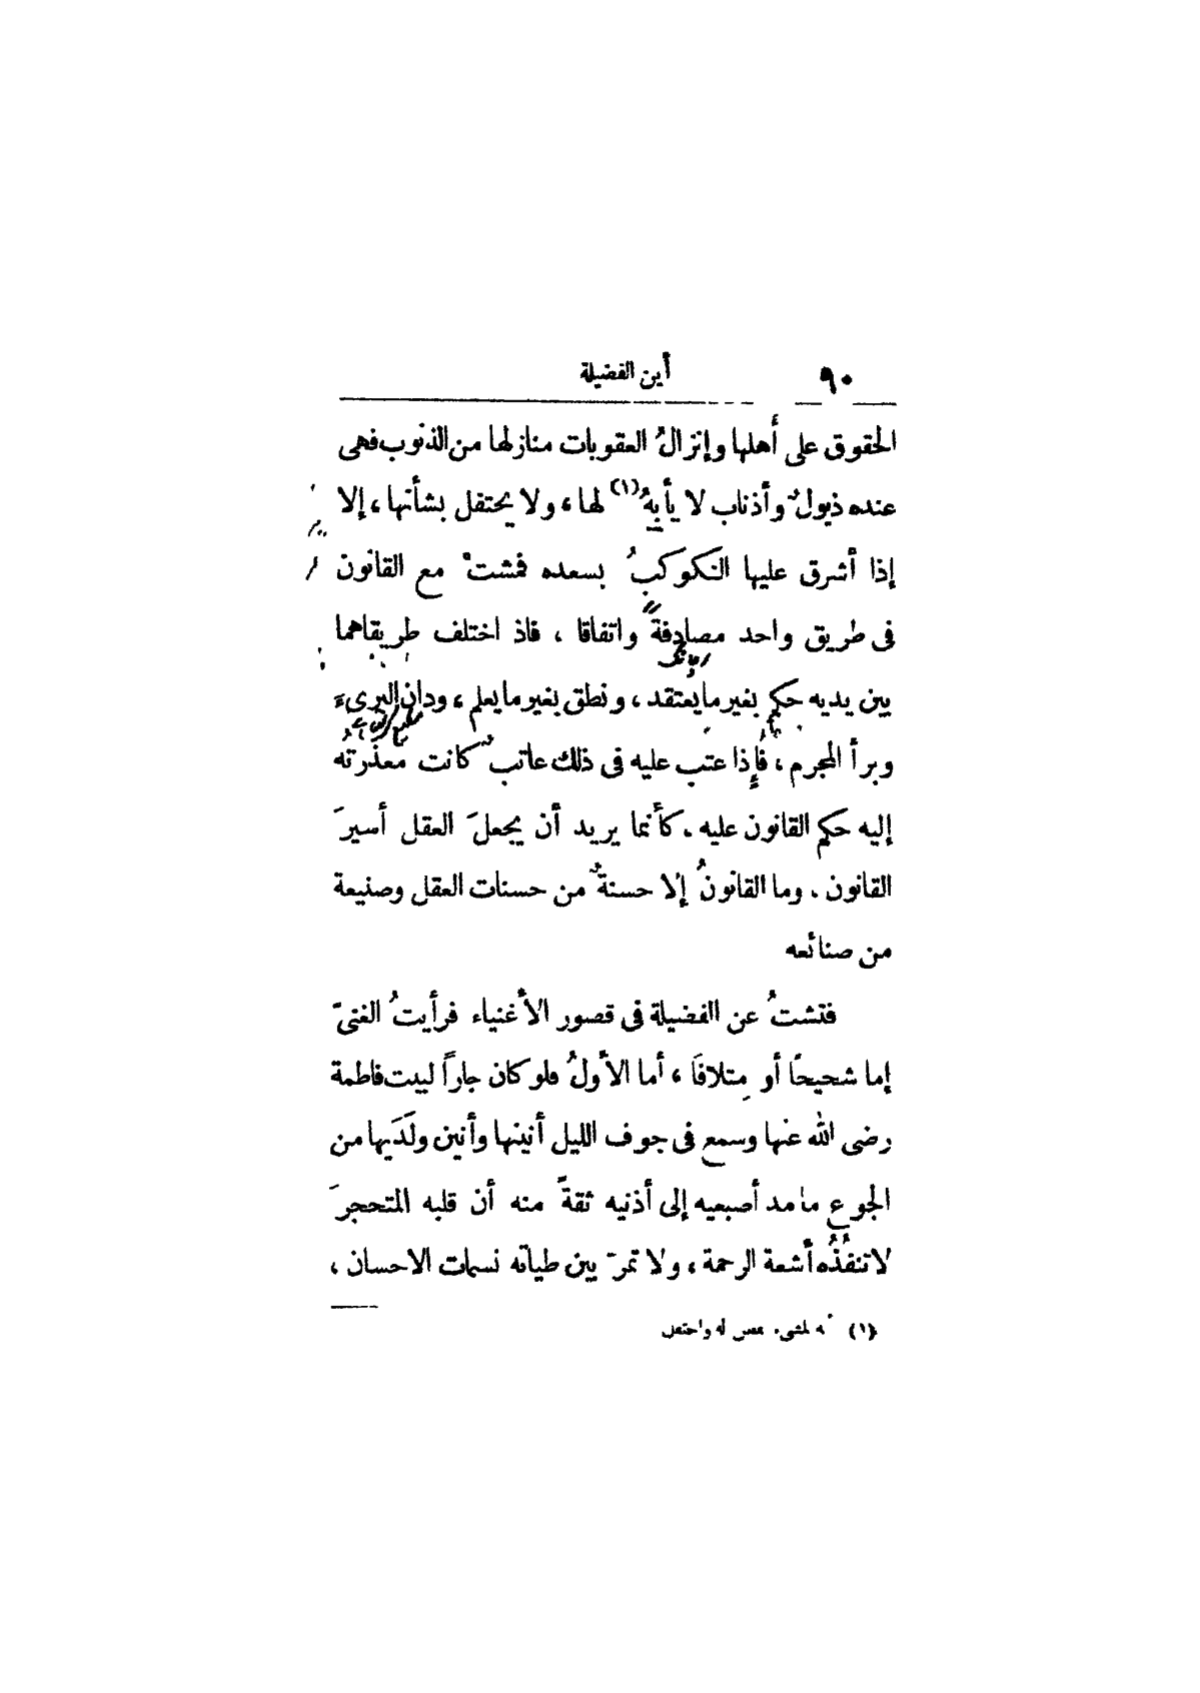 ٩٠ أين الفضيلة
الحقوق على أهلها وإنزالُ العقوبات منازلها من الذنوب فهى
عنده ذيولٌ وأذناب لا يأبهُ(١) لها ، ولا يحتفل بشأنها ، إلا
إذا أشرق عليها الكوكبُ بسعده فمشتْ مع القانون
فى طريق واحد مصادفةً واتفاقا ، فاذ اختلف طريقاهما
بين يديه حكم بغير ما يعتقد ، ونطق بغير ما يعلم ، ودان البرىءَ
وبرأ المجرم ، فإِذا عتب عليه فى ذلك عاتبٌ كانت معذرتُه
إليه حكم القانون عليه . كأنما يريد أن يجعلَ العقل أسيرَ
القانون . وما القانونُ إلا حسنةٌ من حسنات العقل وصنيعة
من صنائعه
فتشتُ عن الفضيلة فى قصور الأغنياء فرأيتُ الغنىّ
إما شحيحًا أو مِتلافًا ، أما الأولُ فلو كان جاراً لبيت فاطمة
رضى الله عنها وسمع فى جوف الليل أنينها وأنين ولَدَيها من
الجوع ما مد أصبعيه إلى أذنيه ثقةً منه أن قلبه المتحجرَ
لا تنفُذُه أشعة الرحمة ، ولا تمرّ بين طياته نسمات الاحسان ،
(١) له واحتفل